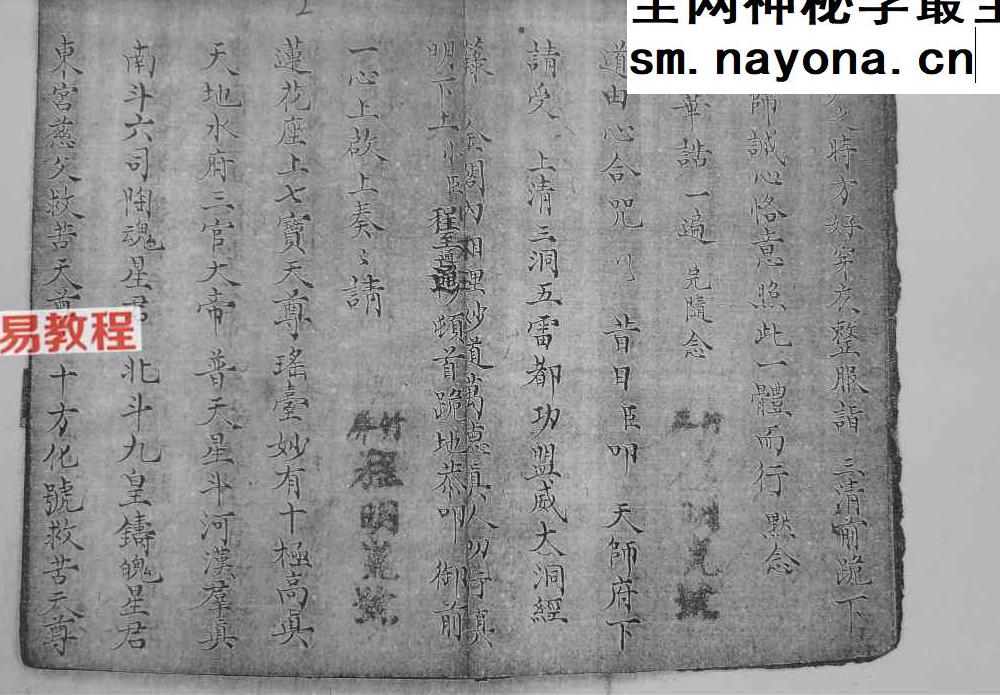 全网神秘学最全
sm.nayona.cn
易教程
之時方好穿衣整服詣 三清前跪下
師誠心恪意照此一體而行 默念
華誥一遍 完隨念
道由心合咒 昔日臣叩 天師府下
請受 上清三洞五雷都功盟威大洞經
籙 金闕內相理妙道萬德真人
明下 上 小臣 程至通 頓首跪地恭叩 御前
一心上啟上奏 請
竹 程明
蓮花座上七寶天尊瑤臺妙有十極高真
天地水府三官大帝普天星斗河漢羣真
南斗六司陶魂星君 北斗九皇鑄魄星君
東宮慈父救苦天尊 十方化號救苦天尊